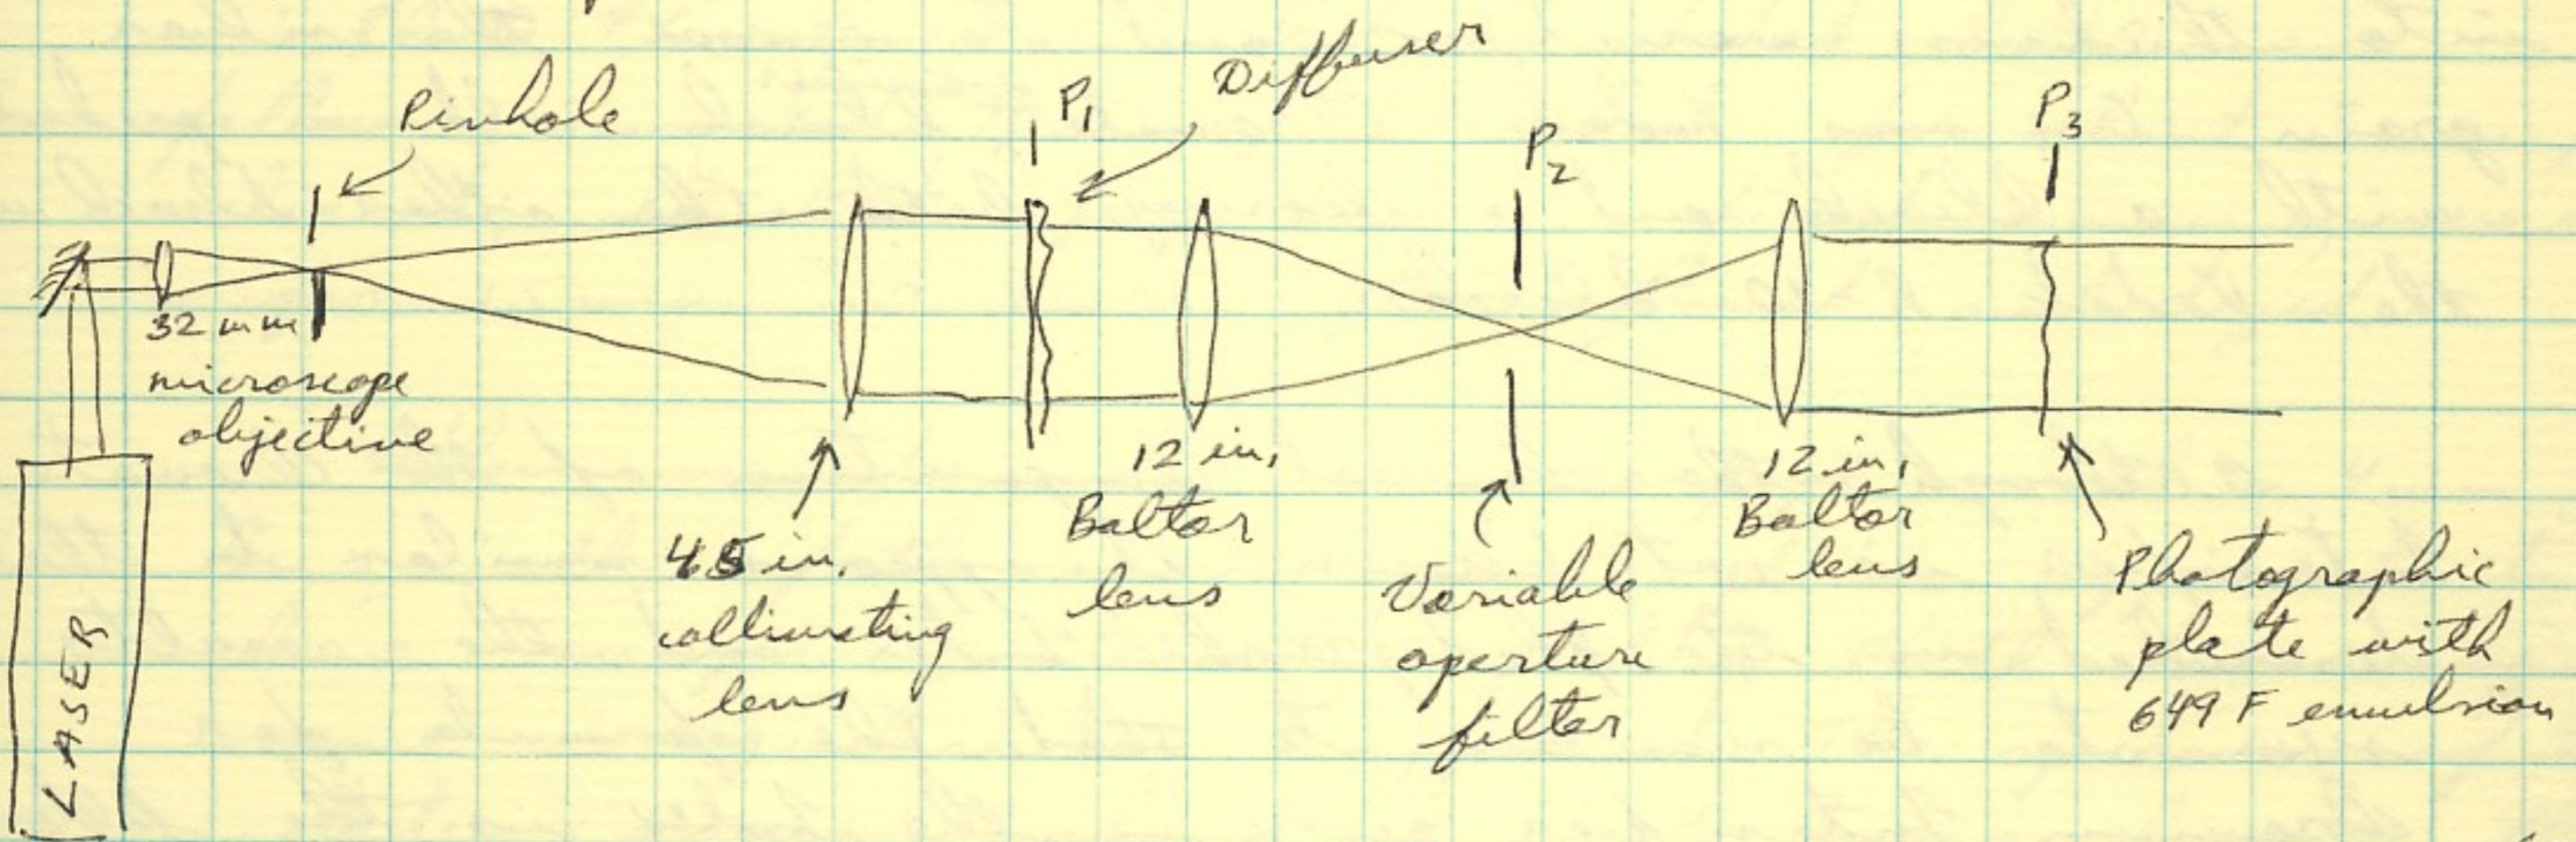 Pinhole
P1
Diffuser
P2
P3
32 mm
microscope
objective
LASER
45 in.
collimating
lens
12 in.
Baltar
lens
Variable
aperture
filter
12 in.
Baltar
lens
Photographic
plate with
649 F emulsion